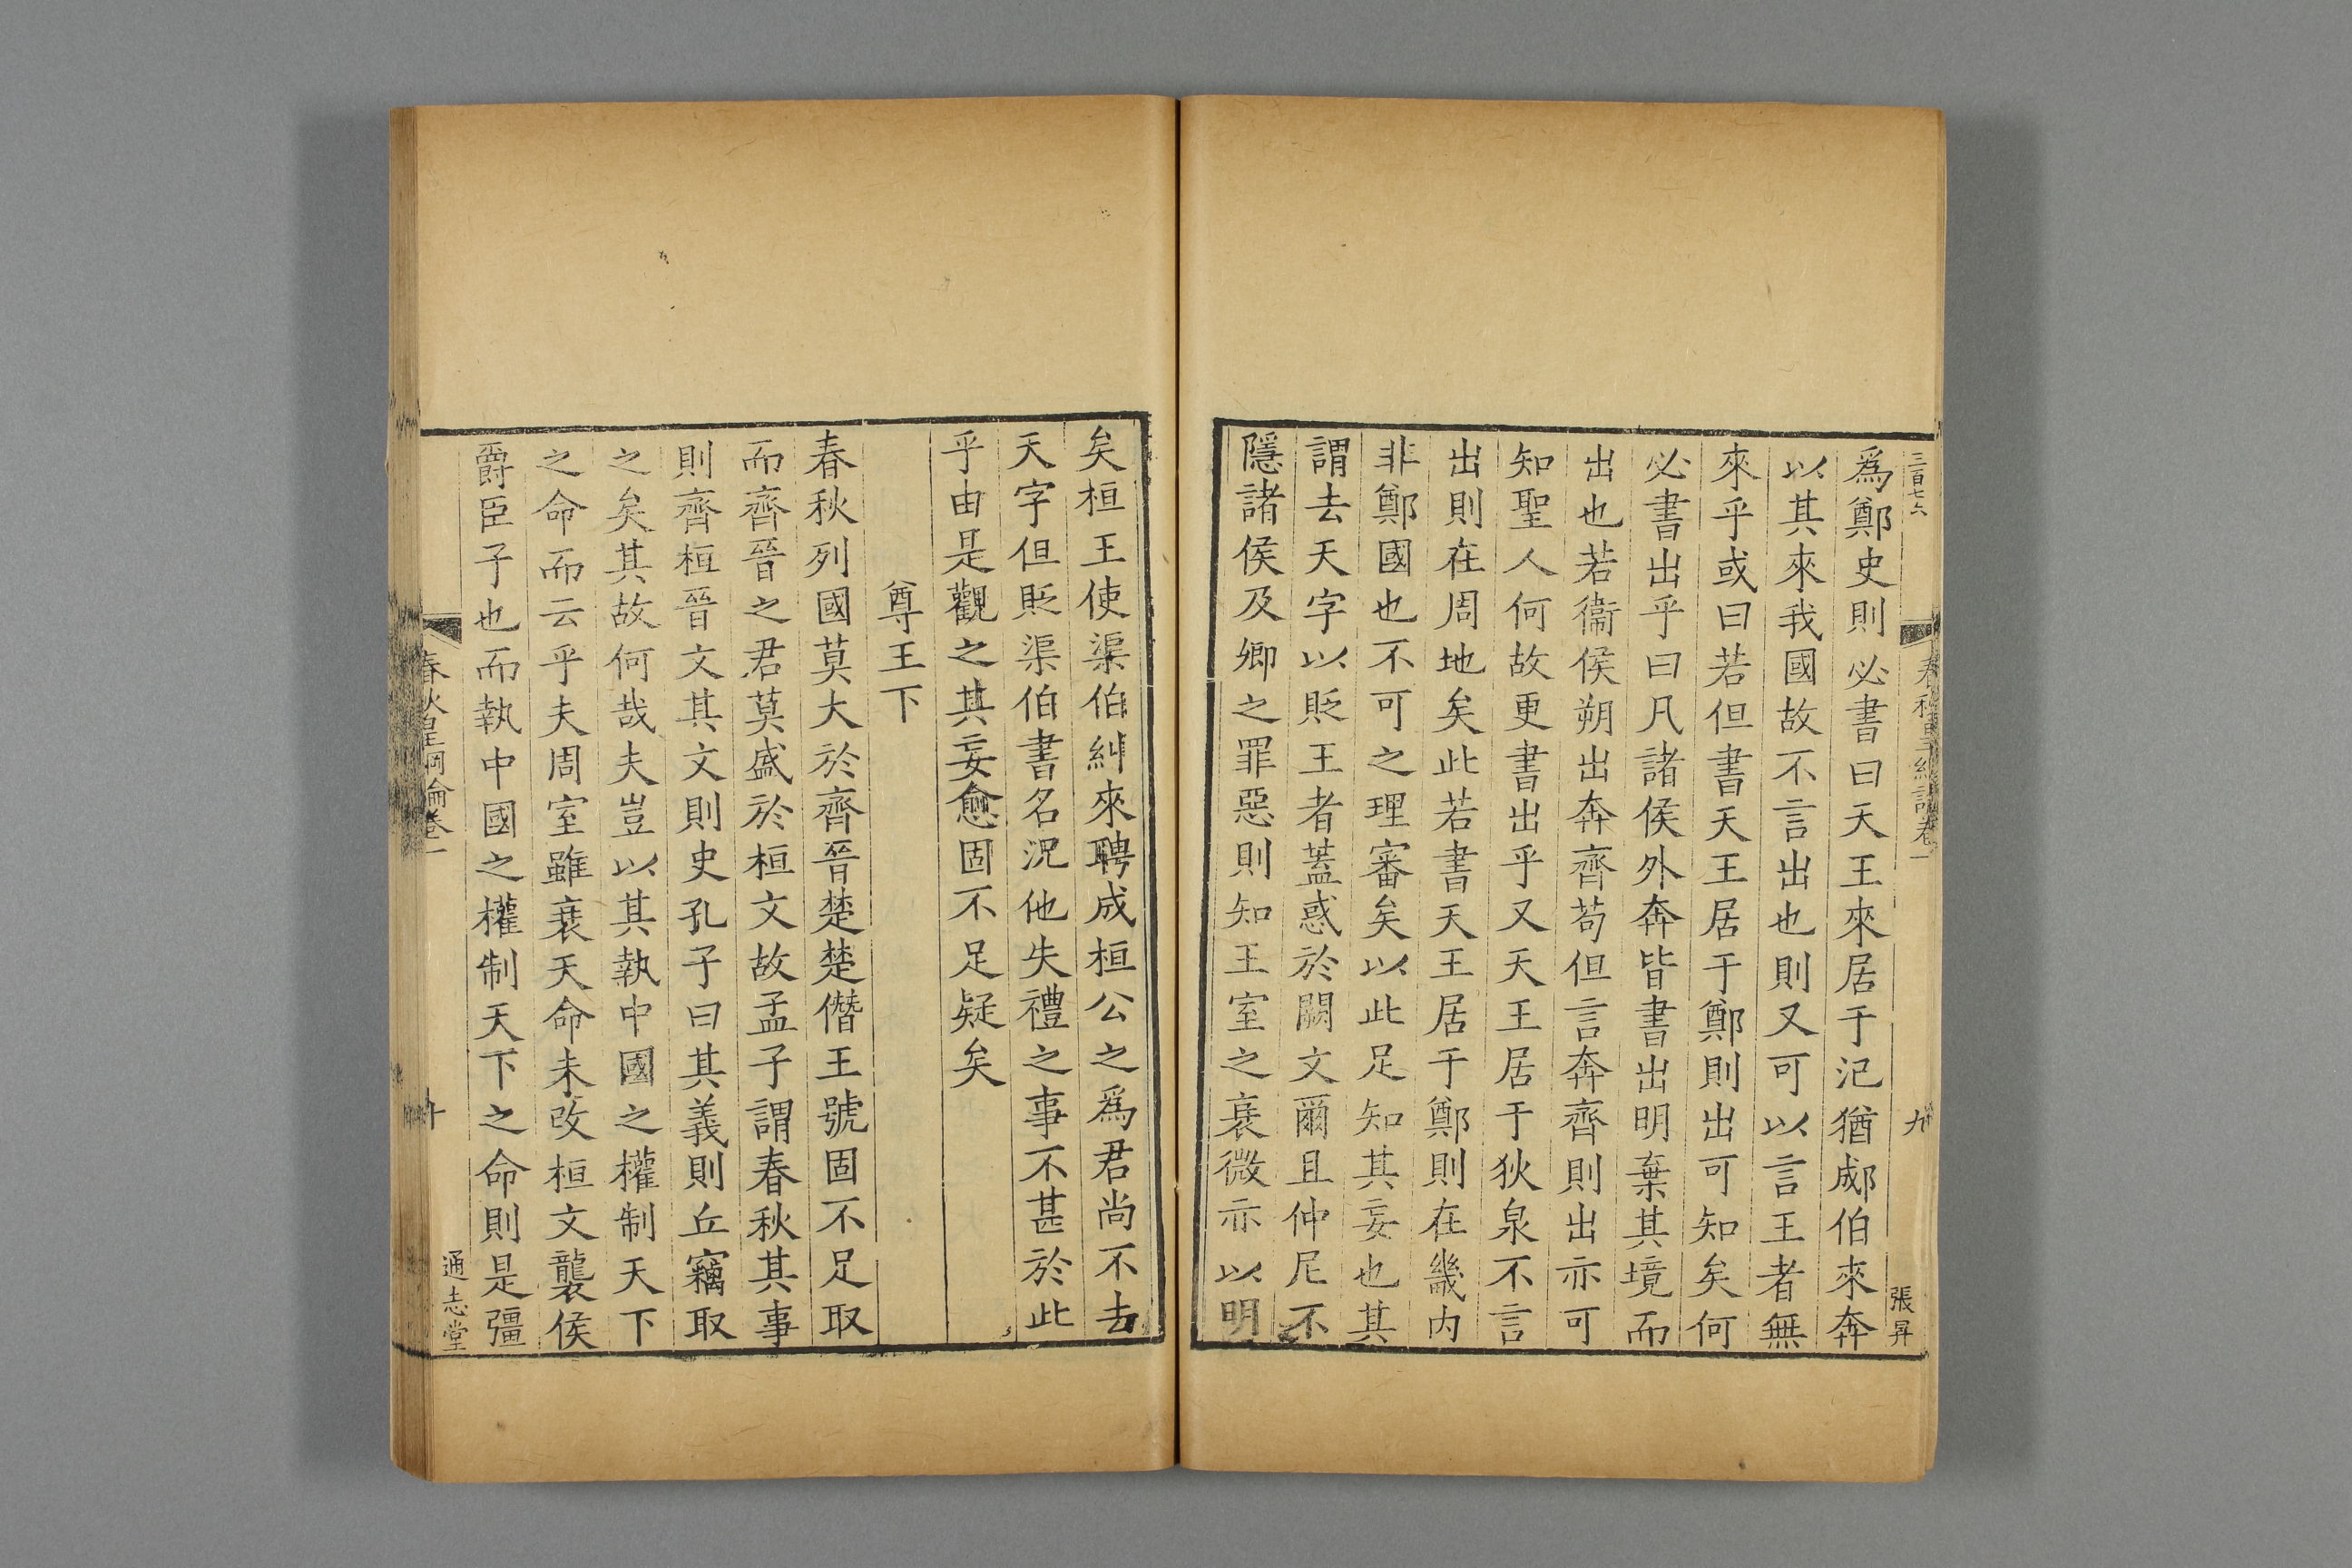 三百七六
九
張昇
爲鄭史則必書曰天王來居于氾猶郕伯來奔
以其來我國故不言出也則又可以言王者無
來乎或曰若但書天王居于鄭則出可知矣何
必書出乎曰凡諸侯外奔皆書出明棄其境而
出也若衞侯朔出奔齊苟但言奔齊則出亦可
知聖人何故更書出乎又天王居于狄泉不言
出則在周地矣此若書天王居于鄭則在畿内
非鄭國也不可之理審矣以此足知其妄也其
謂去天字以貶王者蓋惑於闕文爾且仲尼不
隱諸侯及卿之罪惡則知王室之衰微亦以明
矣桓王使渠伯糾來聘成桓公之爲君尚不去
天字但貶渠伯書名況他失禮之事不甚於此
乎由是觀之其妄愈固不足疑矣
尊王下
春秋列國莫大於齊晉楚楚僭王號固不足取
而齊晉之君莫盛於桓文故孟子謂春秋其事
則齊桓晉文其文則史孔子曰其義則丘竊取
之矣其故何哉夫豈以其執中國之權制天下
之命而云乎夫周室雖衰天命未改桓文襲侯
爵臣子也而執中國之權制天下之命則是彊
春秋皇綱論卷一
十
通志堂